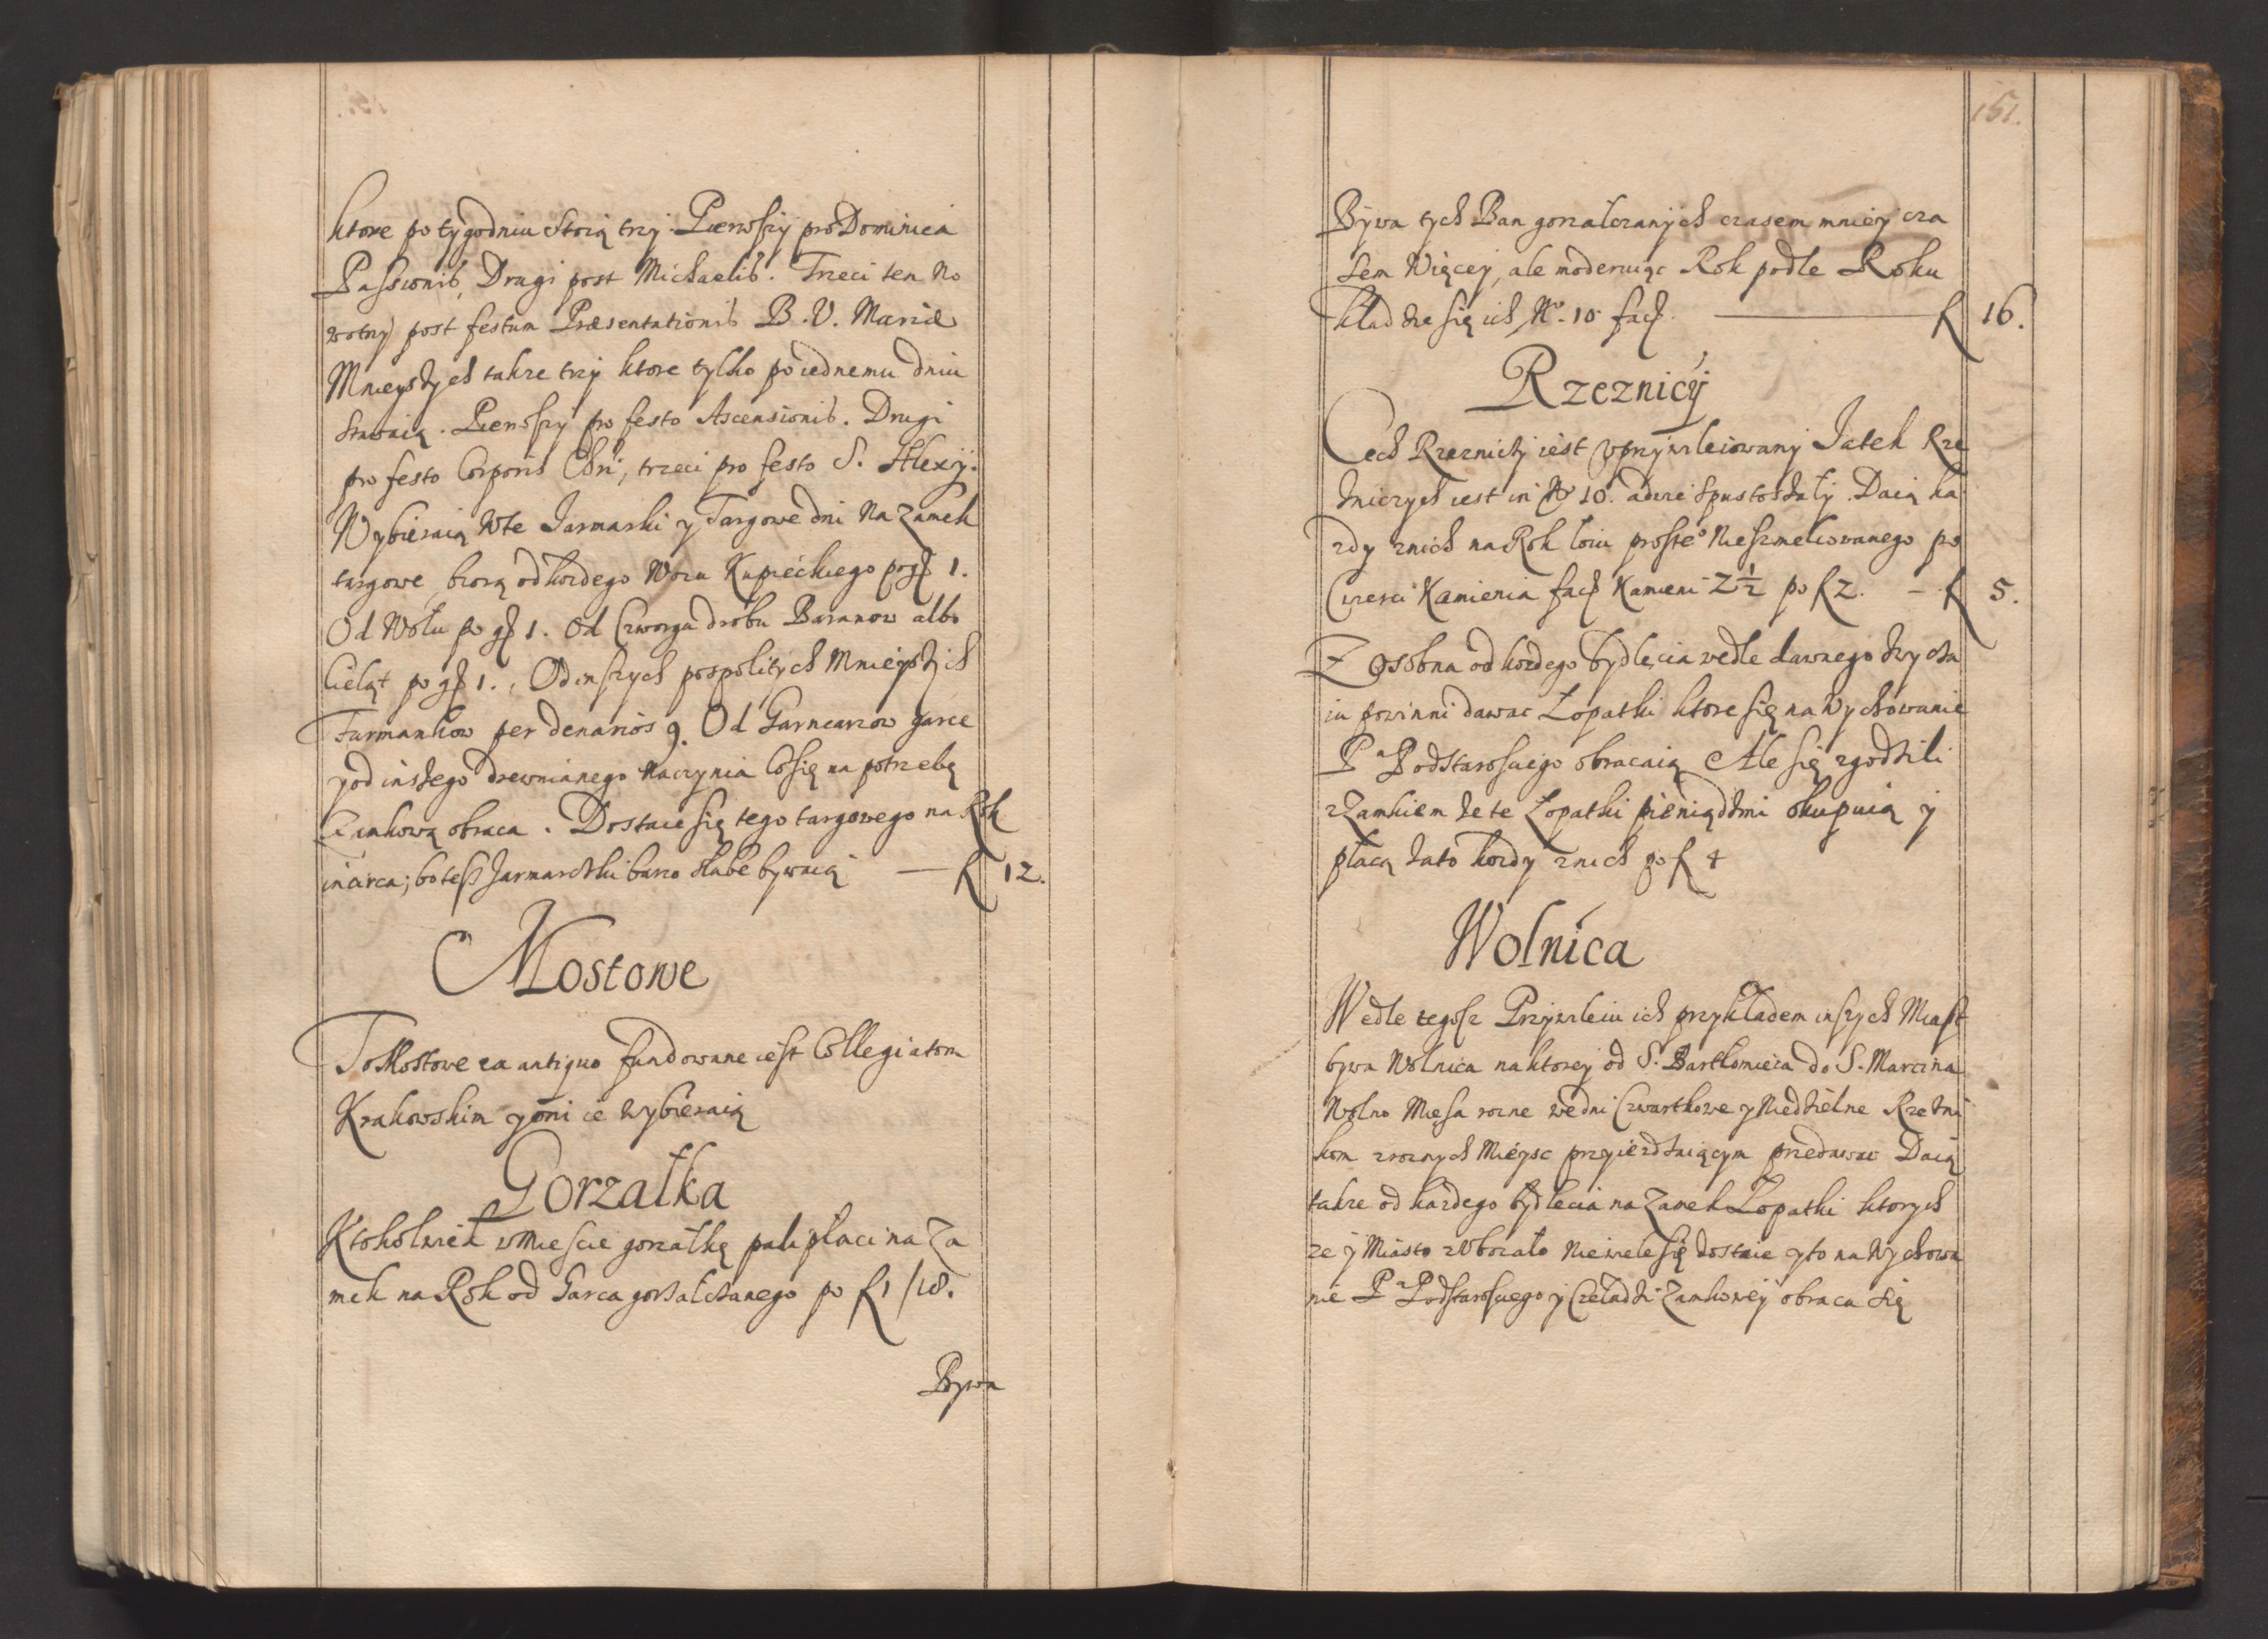 ktore po tygodniu stoią trzy. Pierwszy pro Dominica
Passionis, Drugi post Michaelis. Trzeci ten No
wotny post festum Præsentationis B. V. Mariæ
Mnieyszych takze trzy ktore tylko po iednemu dniu
stawaią. Pierwszy pro festo Ascensionis. Drugi
pro festo Corporis Chri, trzeci pro festo S. Alexy.
Wybieraią w te Iarmarki y Targowe dni na Zamek
targowe, biorą od kozdego Wozu Kupieckiego po gr 1.
Od Wołu po gr 1. Od Czworga drobu Baranow albo
Cieląt po gr 1., Od inszych pospolitych Mnieyszich
Furmankow per denarios 9. Od Garncarzow garce
y od inszego drewnianego naczynia Co się na potrzebę
Zamkową obraca. Dostaie się tego targowego na Rok
in circa; bo tesz Jarmarczki barzo słabe bywaią — f 12.
Mostowe
To Mostowe ex antiquo fundowane iest Collegiatom
Krakowskim y oni ie wybieraią
Gorzałka
Ktokolwiek w Miescie gorzałkę pali płaci na Za
mek na Rok od Garca gorzałczanego po f 1 /18.
Bywa
151.
Bywa tych Ban gorzałczanych czasem mniey cza
sem Więcey, ale moderuiąc Rok podle Roku
kładzie się ich No. 10 facit — f 16.
Rzeznicy
Cech Rzeznicky iest uprzywileiowany Iatek Rze
zniczych iest in No 10. adzie spustoszały. Daią ka
zdy znich na Rok łoiu proste° Nieszmelcowanego po
Czwerci Kamienia facit Kamieni 2 ½ po f 2. — f 5.
Z Osobna od kozdego bydlęcia wedle dawnego zwycza
iu powinni dawac Łopatki ktore się na Wychowanie
Pa Podstarosciego obracaią Ale się zgodzili
z Zamkiem ze te Łopatki pieniądzmi okupuią y
płacą zato kozdy znich po f 4
Wolnica
Wedle tegosz Przywileiu ich przykładem inszych Miast
bywa Wolnica na ktorey od S. Bartłomieia do S. Marcina
Wolno Mięsa rozne we dni Czwartkowe y Niedzielne Rzezni
kom z roznych Mieysc przyiezdzaiącym przedawac Daią
takze od kazdego bydlecia na Zamek Łopatki ktorych
ze y Miasto zubozało nie wiele się dostaie y to na Wychowa
nie Pa Podstarosciego y Czeladzi Zamkowey obraca się